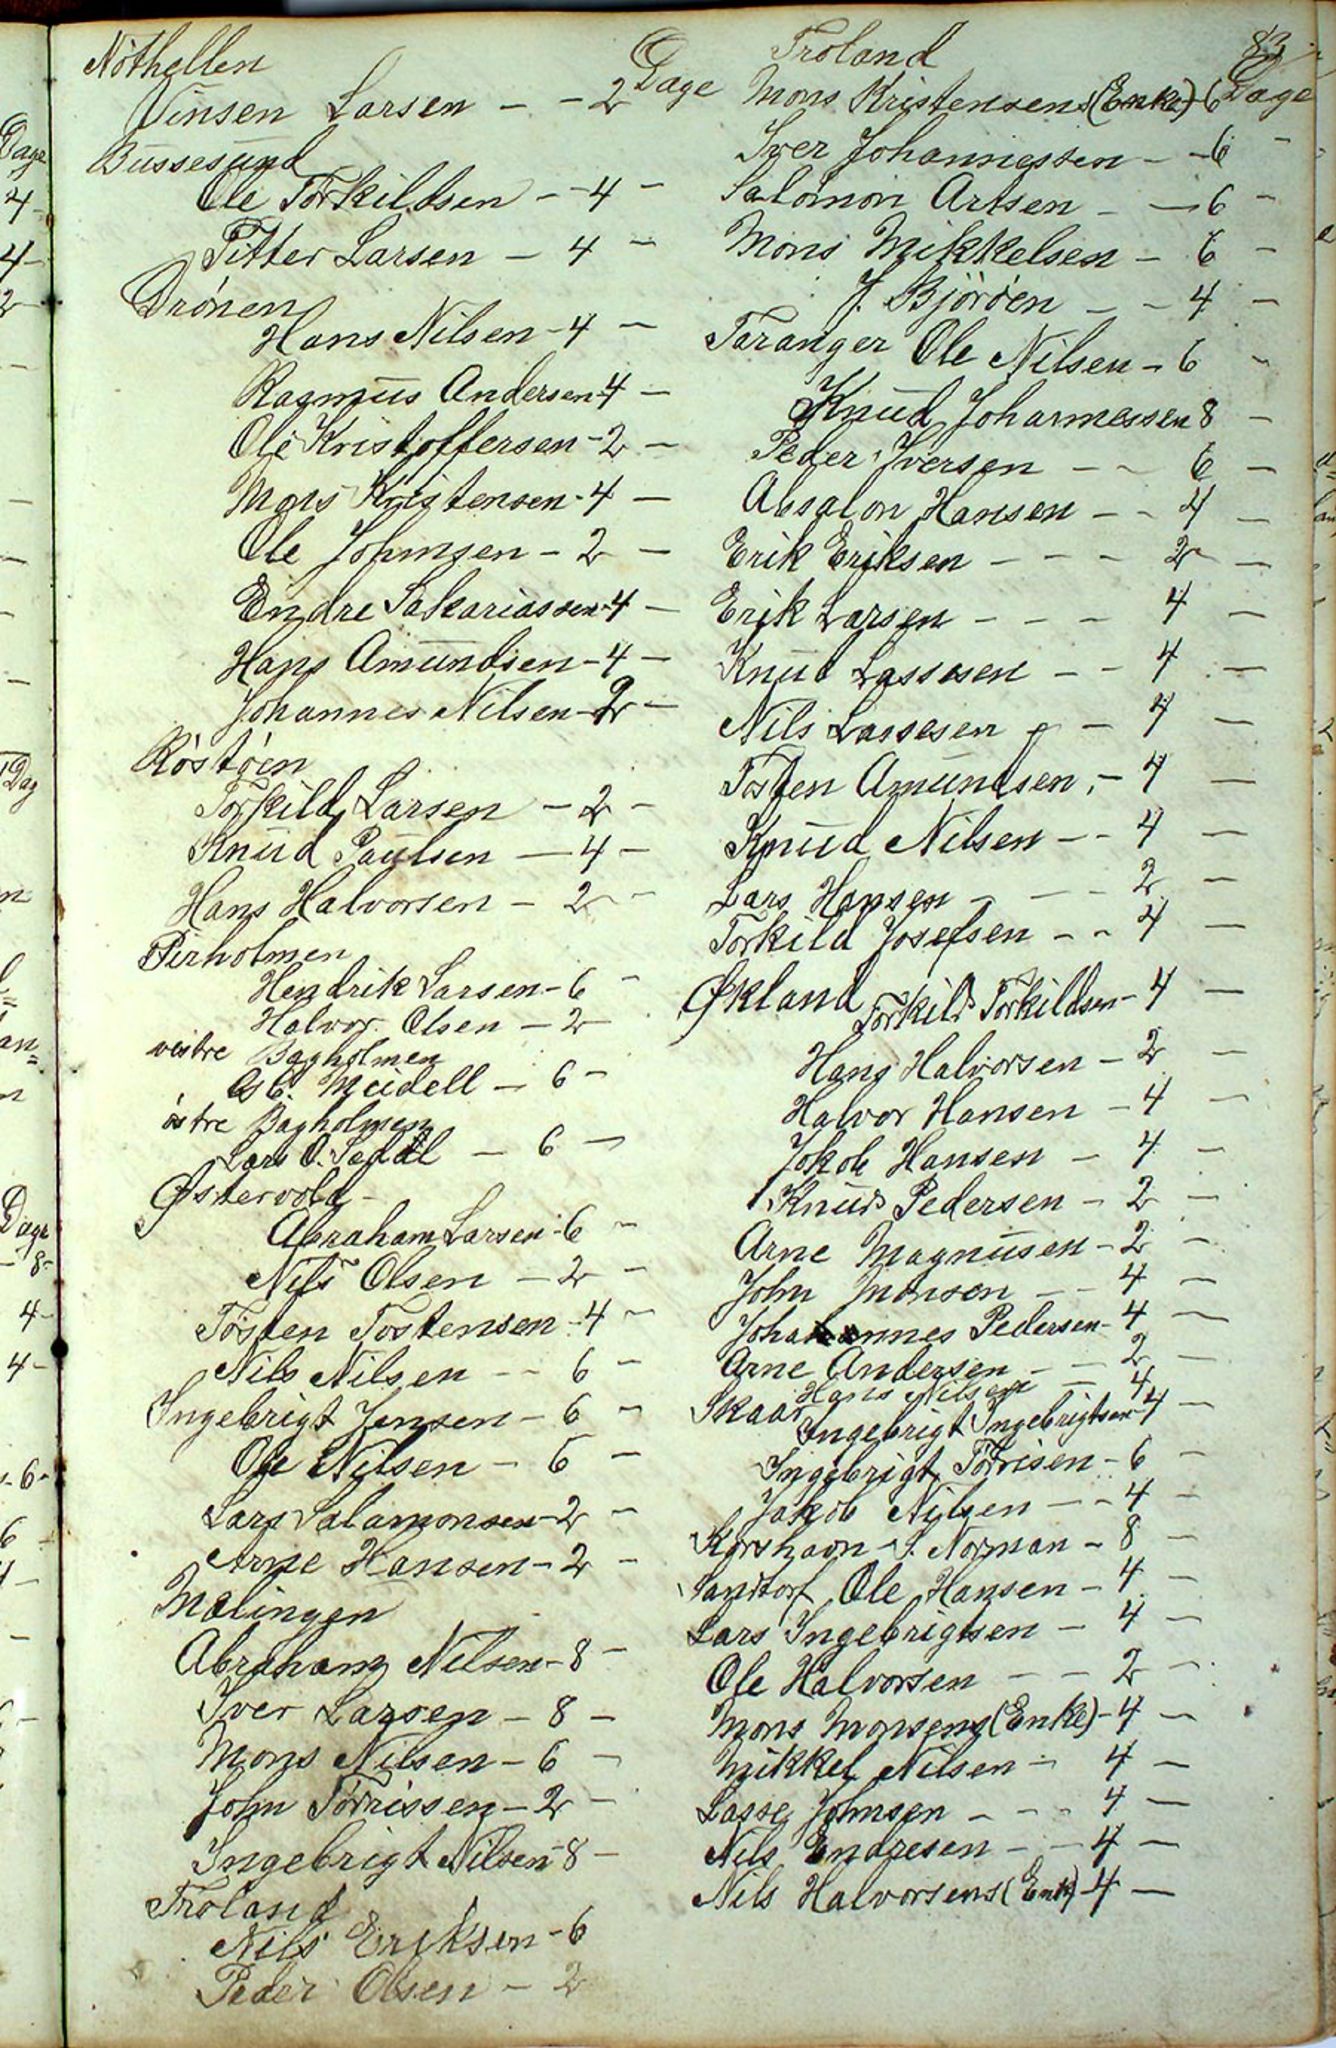 83
Nöthellen
Vinsen Larsen - - 2 Dage
Bussesund
Ole Torkildsen - - 4 -
Pitter Larsen - 4 -
Drönen
Hans Nilsen - 4 -
Rasmus Andersen - 4 -
Ole Kristoffersen - 2 -
Mons Kristensen - 4 -
Ole Johnsen - 2 -
Endre Sakariassen - 4 -
Hans Amundsen - 4 -
Johannes Nilsen - 2 -
Röstöen
Torkild Larsen - 2 -
Knud Paulsen - 4 -
Hans Halvorsen - 2 -
Pirholmen
Hendrik Larsen - 6 -
Halvor Olsen - 2 -
vestre Bagholmen
Meidell - 6 -
östre Bagholmen
Lars O. - 6 -
Østervold -
Abraham Larsen - 6 -
Nils Olsen - 2 -
Tosten Tostensen - 4 -
Nils Nilsen - - 6 -
Ingebrigt Jensen - 6 -
Ole Nilsen - 6 -
Lars Salamonsen - 2 -
Arne Hansen - 2 -
Mælingen
Abraham Nilsen - 8 -
Iver Larsen - 8 -
Mons Nilsen - 6 -
John Törrissen - 2 -
Ingebrigt Nilsen - 8 -
Troland
Nils Eriksen - 6
Peder Olsen - 2
Troland
Mons Kristensens (Enke) - 6 Dage
Iver Johannessen - - 6 -
Salomon Artsen - - 6 -
Mons Mikkelsen - 6 -
J. Björöen - - 4 -
Taranger Ole Nilsen - 6 -
Knud Johannessen 8 -
Peder Iversen - - 6 -
Absalon Hansen - - 4 -
Erik Eriksen - - - 2 -
Erik Larsen - - - 4 -
Knud Lassesen - - 4 -
Nils Lassesen - - 4 -
Tosten Amundsen, - 4 -
Knud Nilsen - - 4 -
Lars Hansen - - - 2 -
Torkild Josefsen - - 4 -
Økland Torkild Torkildsen - 4 -
Hans Halvorsen - 2 -
Halvor Hansen - 4 -
Jokob Hansen - 4 -
Knud Pedersen - 2 -
Arne Magnusen - 2 -
John Monsen - - 4 -
Johannes Pedersen - 4 -
Arne Andersen - - 2 -
Hans Nilsen - 4
Skaar Ingebrigt Ingebrigtsen - 4 -
Ingebrigt Törrisen - 6 -
Jakob Nilsen - - 4 -
Korshavn S. Norman - 8 -
Sandtorf Ole Hansen - 4 -
Lars Ingebrigtsen - 4 -
Ole Halvorsen - - 2 -
Mons Monsens (Enke) - 4 -
Mikkel Nilsen - 4 -
Lasse Johnsen - - - 4 -
Nils Endresen - - 4 -
Nils Halvorsens (Enk) - 4 -